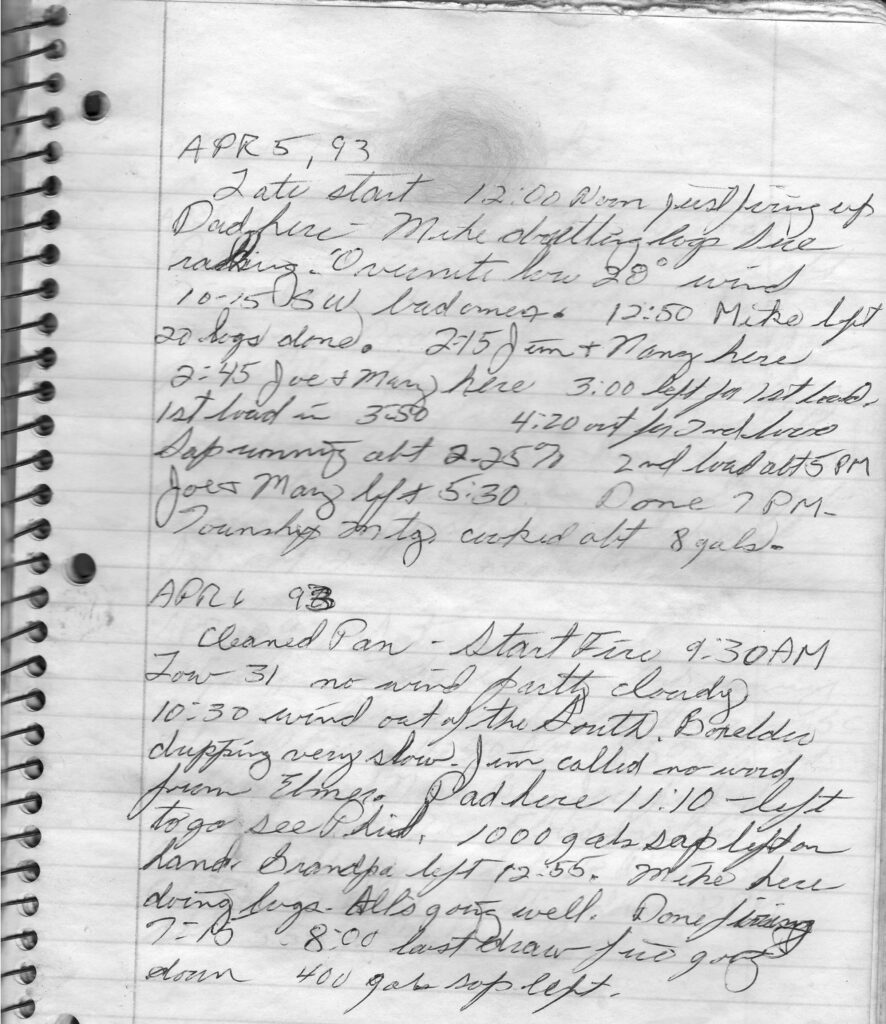 APR 5, 93
Late start 12:00 Noon just firing up
Dad here - Mike drilling logs
Overnite low 28° wind
10-15 SW bad omen. 12:50 Mike left
20 logs done. 2:15 Jim + Nancy here
2:45 Joe + Mary here 3:00 left for 1st load.
1st load in 3:50 4:20 out for 2nd load
Sap running abt 2.25% 2nd load abt 5 PM
Joe + Mary left 5:30 Done 7 PM -
Township Mtg. cooked abt 8 gals.
APR 6 93
Cleaned Pan - Start Fire 9:30 AM
Low 31 no wind partly cloudy
10:30 wind out of the South. Boxelder
dripping very slow. Jim called no word
from Elmer. Dad here 11:10 - left
to go see Phil. 1000 gals sap left on
hand. Grandpa left 12:55. Mike here
doing logs. All's going well. Done firing
7:15 - 8:00 last draw fire going
down 400 gals sap left.